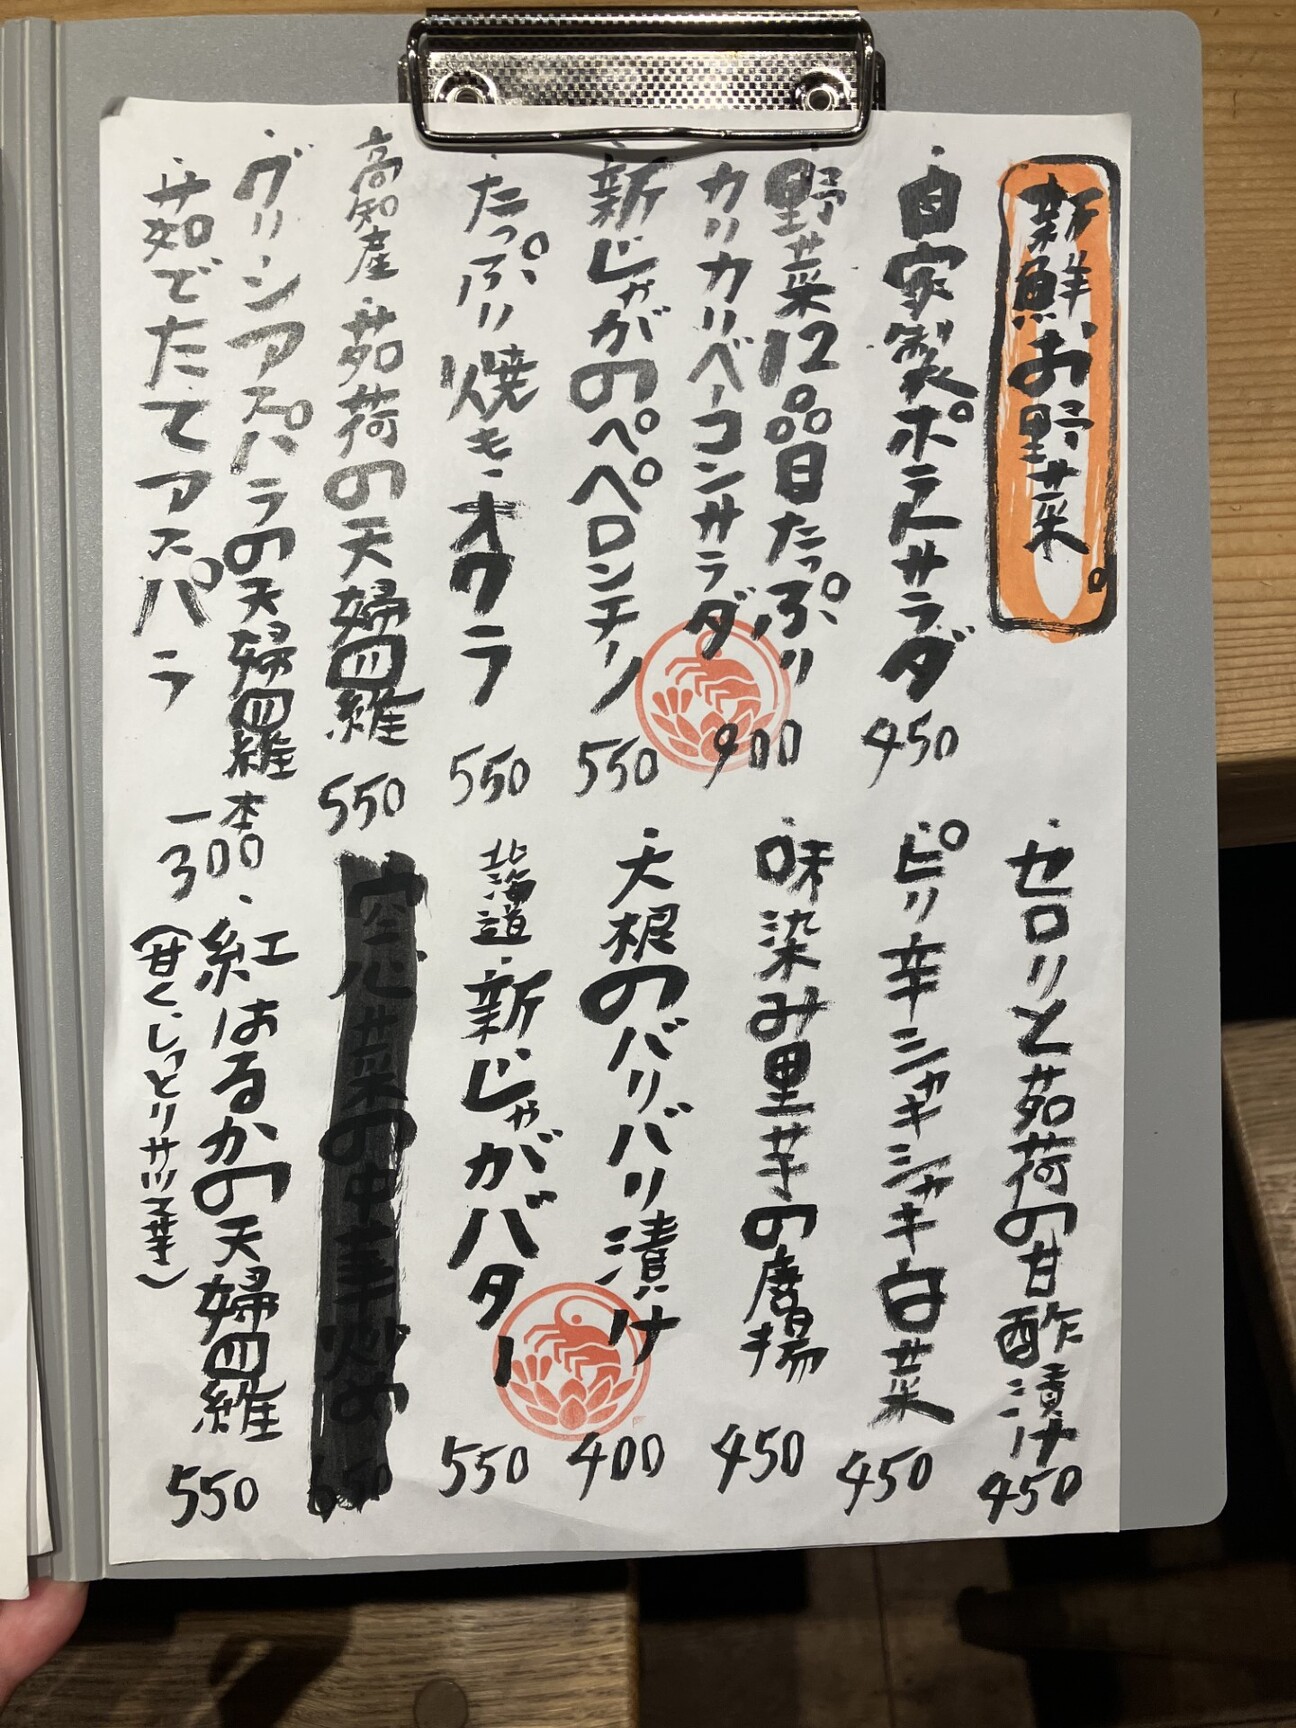 新鮮お野菜。
・自家製ポテトサラダ 450
・野菜12品目たっぷり
カリカリベーコンサラダ 900
・新じゃがのペペロンチーノ 550
・たっぷり焼きオクラ 550
高知産・茗荷の天婦羅 550
・グリーンアスパラの天婦羅
一本300
・茹でたてアスパラ
・セロリと茗荷の甘酢漬け 450
・ピリ辛シャキシャキ白菜 450
・味染み里芋の唐揚 450
・大根のバリバリ漬け 400
北海道・新じゃがバター 550
空心菜の中華炒め 650
・紅はるかの天婦羅 550
(甘くしっとりサツマ芋)